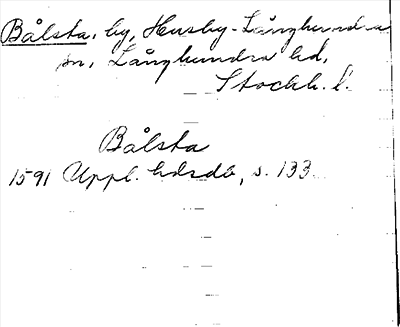 Bålsta, by, Husby-Långhundra
sn, Långhundra hd,
Stockh. l.
Bålsta
1591 Uppl. hdrdb, s. 133